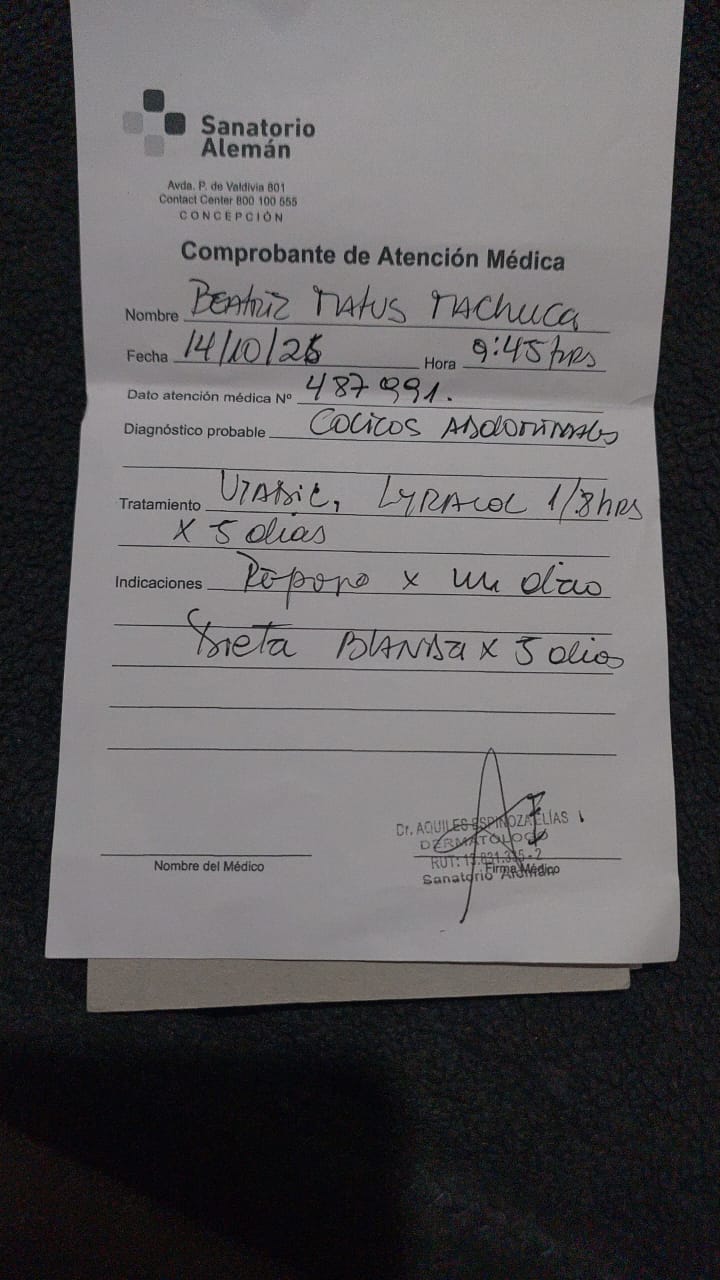 Sanatorio
Alemán
Avda. P. de Valdivia 801
Contact Center 800 100 555
CONCEPCIÓN
Comprobante de Atención Médica
Nombre BEATRIZ MATUS MACHUCA
Fecha 14/10/25 Hora 9:45 hrs
Dato atención médica Nº 487991.
Diagnóstico probable COLICOS ABDOMINALES
Tratamiento LYRACOL 1/8 hrs
X 5 dias
Indicaciones Reposo x un dia
Dieta BLANDA x 5 dias
Dr. AQUILES ESPINOZA ELÍAS
DERMATOLOGO
RUT:
Sanatorio Alemán
Nombre del Médico
Firma Médico